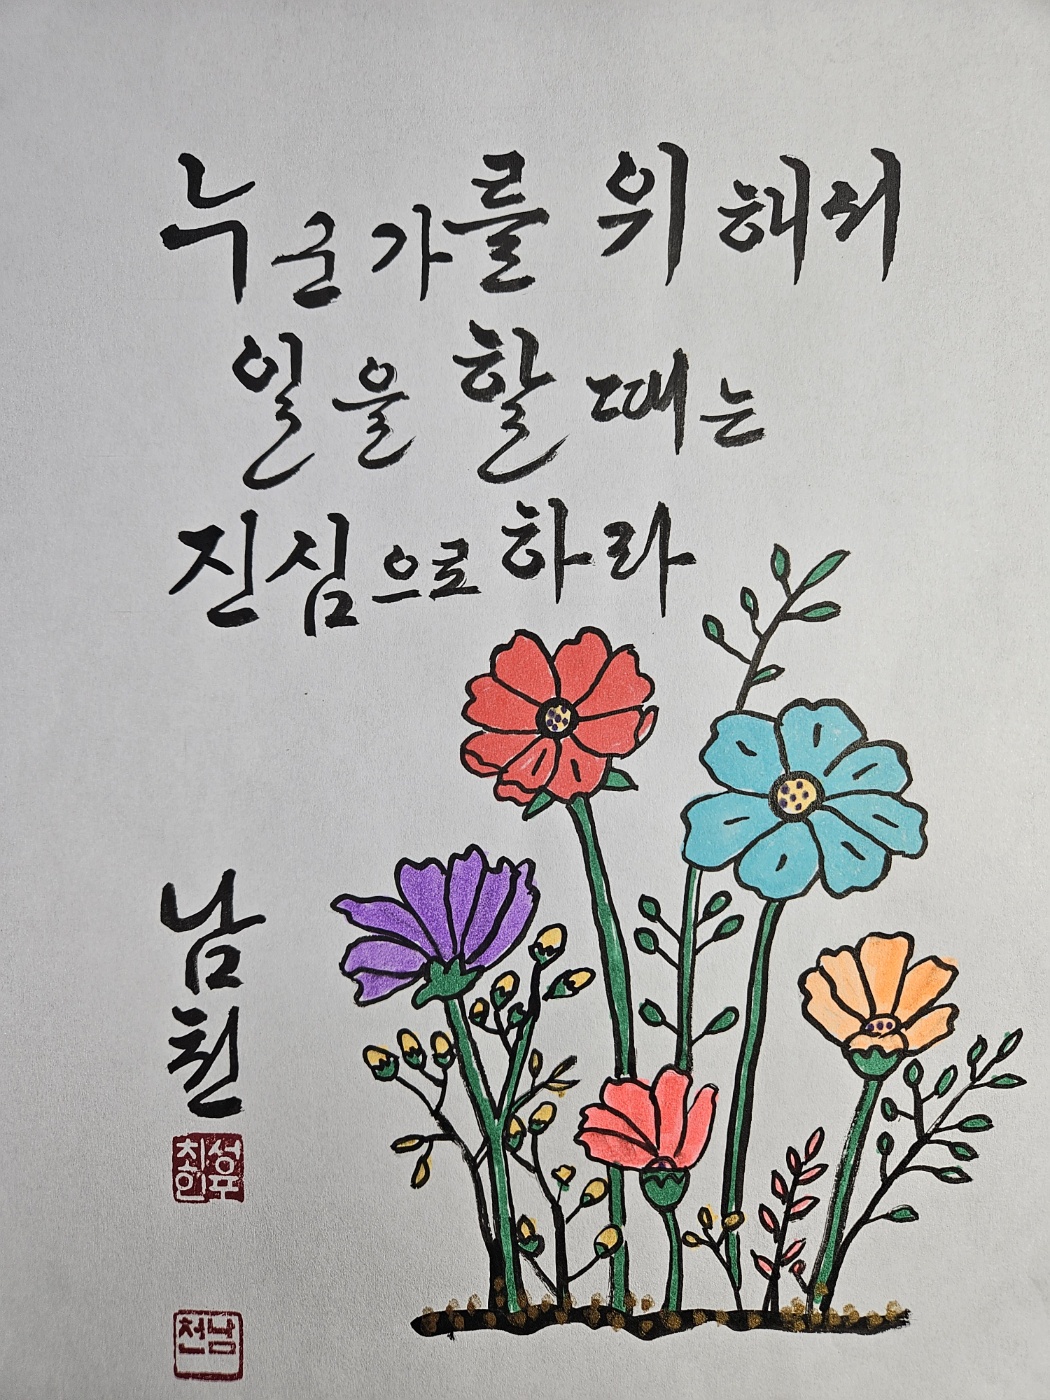 누군가를 위해서
일을 할 때는
진심으로 하라
남천
남천